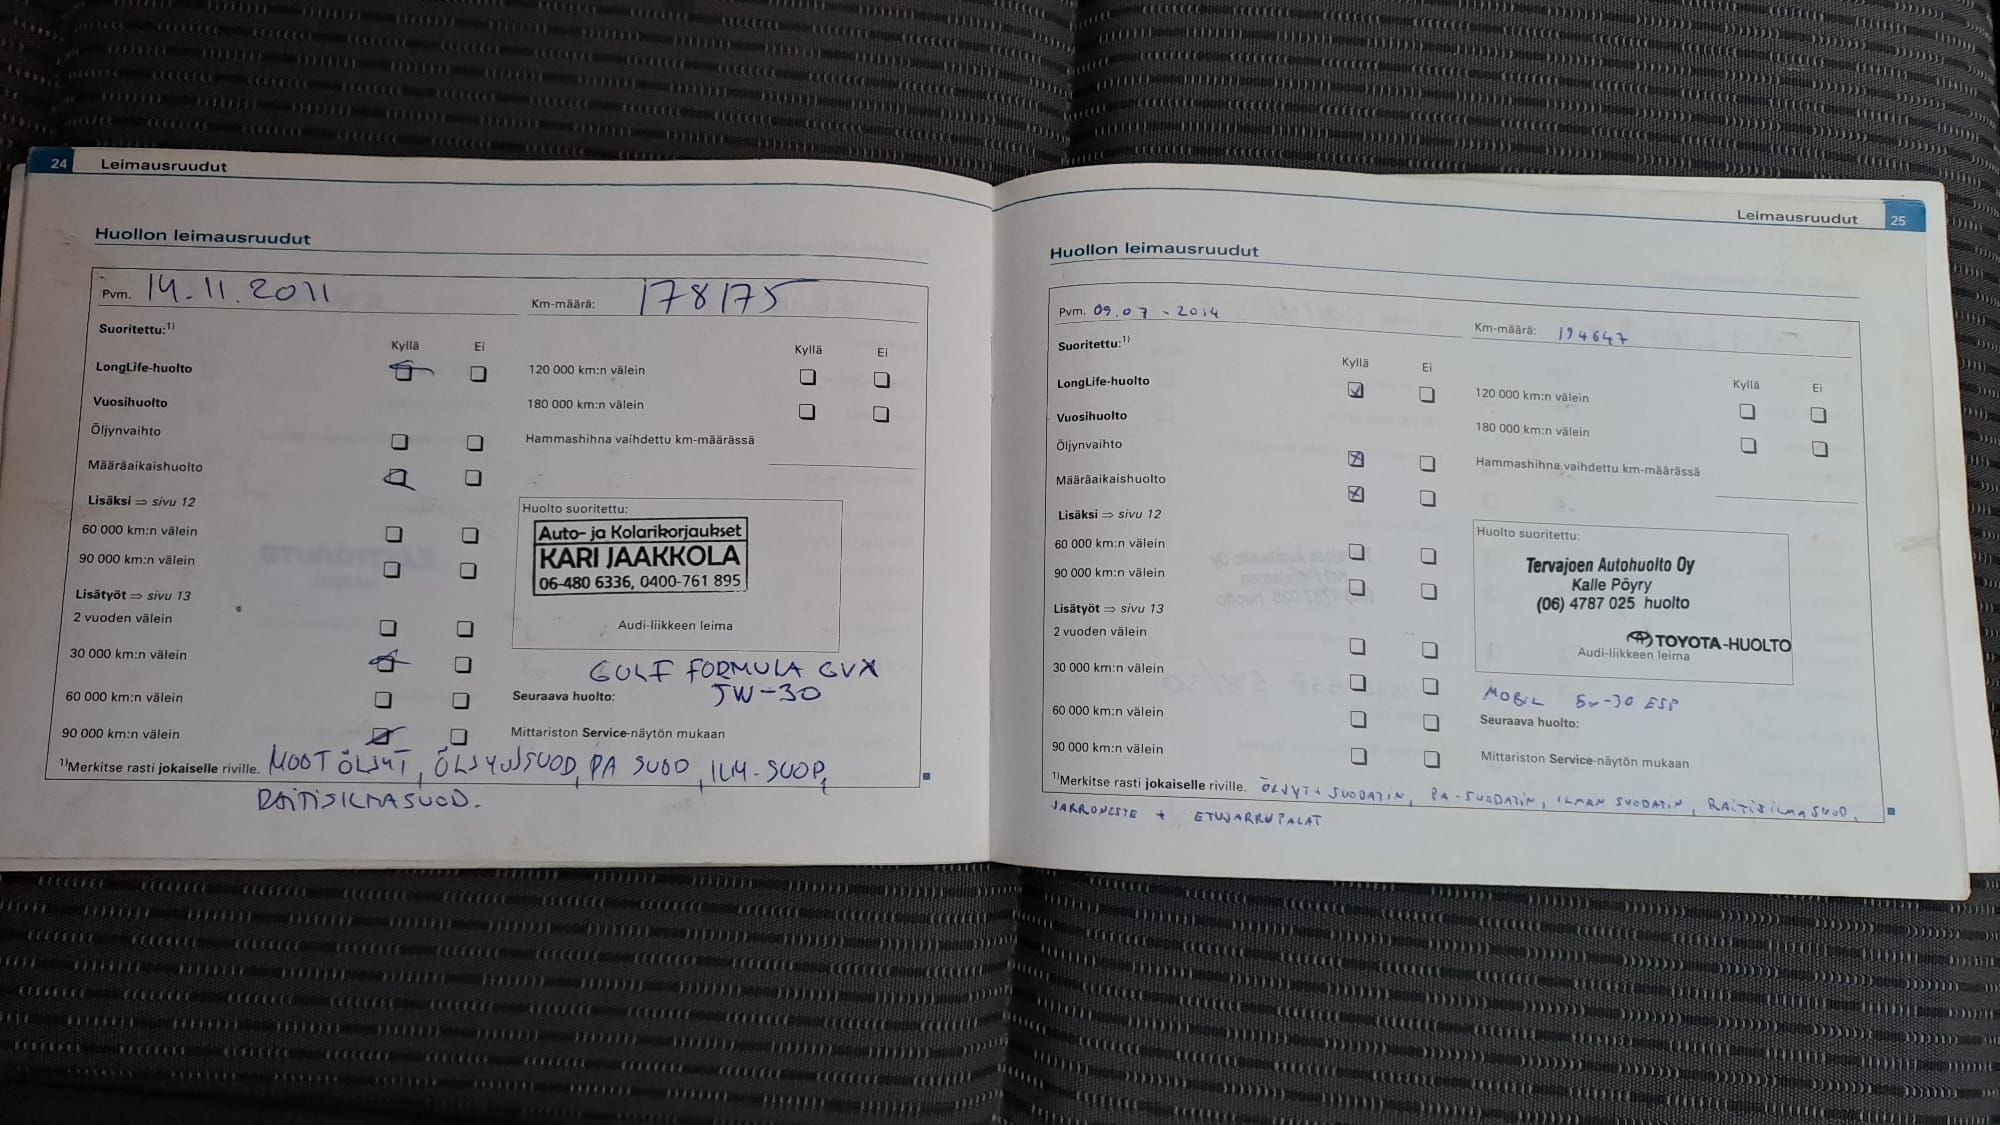 24 Leimausruudut
Huollon leimausruudut
Pvm. 14.11.2011 Km-määrä: 178175
Suoritettu:1)
Kyllä Ei Kyllä Ei
LongLife-huolto 120 000 km:n välein
Vuosihuolto 180 000 km:n välein
Öljynvaihto Hammashihna vaihdettu km-määrässä
Määräaikaishuolto
Lisäksi ⇒ sivu 12
60 000 km:n välein
90 000 km:n välein
Lisätyöt ⇒ sivu 13
2 vuoden välein
30 000 km:n välein
60 000 km:n välein
90 000 km:n välein
Huolto suoritettu:
Auto- ja Kolarikorjaukset
KARI JAAKKOLA
06-480 6336, 0400-761 895
Audi-liikkeen leima
GULF FORMULA GVX
5W-30
Seuraava huolto:
Mittariston Service-näytön mukaan
1)Merkitse rasti jokaiselle riville. MOOT ÖLJYT, ÖLJYNSUOD, PA SUOD, ILM-SUOD,
RAITISILMASUOD.
Leimausruudut 25
Huollon leimausruudut
Pvm. 09.07-2014 Km-määrä: 194647
Suoritettu:1)
Kyllä Ei Kyllä Ei
LongLife-huolto 120 000 km:n välein
Vuosihuolto 180 000 km:n välein
Öljynvaihto Hammashihna vaihdettu km-määrässä
Määräaikaishuolto
Lisäksi ⇒ sivu 12
60 000 km:n välein
90 000 km:n välein
Lisätyöt ⇒ sivu 13
2 vuoden välein
30 000 km:n välein
60 000 km:n välein
90 000 km:n välein
Huolto suoritettu:
Tervajoen Autohuolto Oy
Kalle Pöyry
(06) 4787 025 huolto
TOYOTA-HUOLTO
Audi-liikkeen leima
MOBIL 5w-30 ESP
Seuraava huolto:
Mittariston Service-näytön mukaan
1)Merkitse rasti jokaiselle riville. ÖLJYT + SUODATIN, PA-SUODATIN, ILMAN SUODATIN, RAITISILMASUOD,
JARRUNESTE + ETUJARRUPALAT